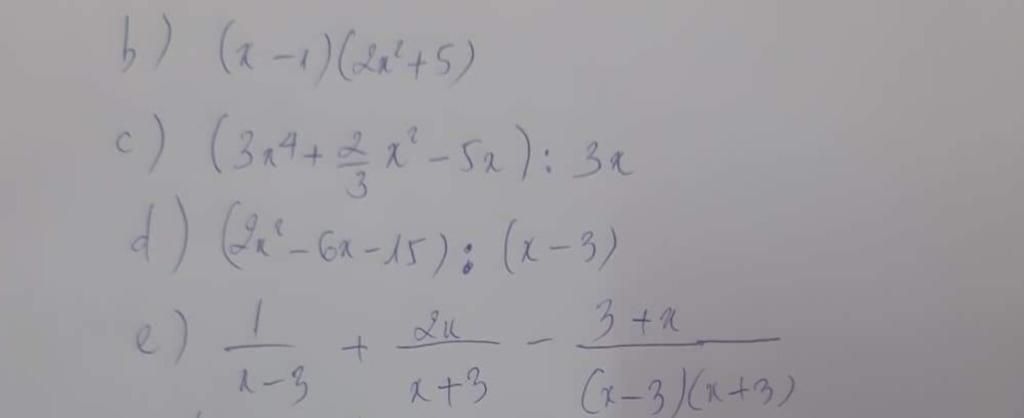 b) (x-1)(2x²+5)
c) (3x⁴+\frac{2}{3}x²-5x): 3x
d) (2x²-6x-15): (x-3)
e) \frac{1}{x-3} + \frac{2x}{x+3} - \frac{3+x}{(x-3)(x+3)}